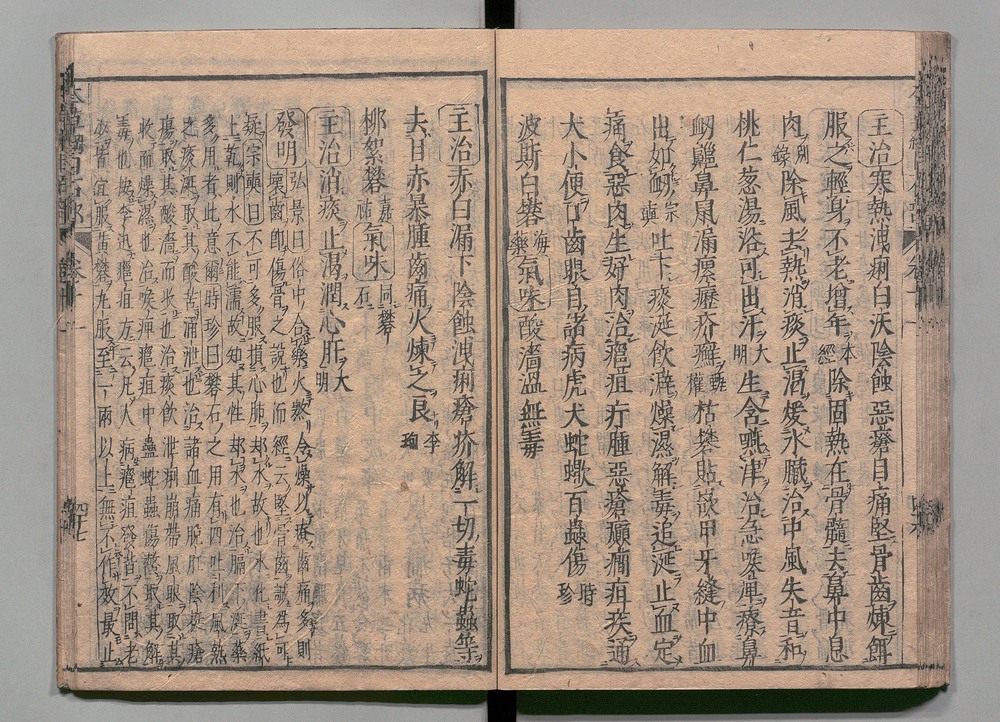 主治寒熱洩痢白沃陰蝕惡瘡目痛堅骨齒煉餌
服之輕身不老增年本經除固熱在骨髓去鼻中息
肉別錄除風去熱消痰止渴煖水臟治中風失音和
桃仁葱湯浴可出汗大明生含嚥津治急喉痺療鼻
衂齆鼻鼠漏瘰癧疥癬甄權枯礬貼嵌甲牙縫中血
出如衂宗奭吐下痰涎飲澼燥濕解毒追涎止血定
痛食惡肉生好肉治癰疽疔腫惡瘡癲癇疸疾通
大小便口齒眼目諸病虎犬蛇蠍百蟲傷時珍
波斯白礬海藥氣味酸濇溫無毒
主治赤白漏下陰蝕洩痢瘡疥解一切毒蛇蟲等
去目赤暴腫齒痛火煉之良李珣
柳絮礬嘉祐氣味同礬石
主治消痰止渴潤心肝大明
發明弘景曰俗中合藥火熬令燥以療齒痛多則
壞齒即傷骨之證也而經云堅骨齒誠為可
疑宗奭曰不可多服損心肺却水故也水化書紙
上乾則水不能濡故知其性却水也治膈下涎藥
多用者此意爾時珍曰礬石之用有四吐利風熱
之痰涎取其酸苦涌泄也治諸血痛脫肛陰挺瘡
瘍取其酸濇而收也治痰飲泄痢崩帶風眼取其
收而燥濕也治喉痺癰疽中蠱蛇蟲傷螫取其解
毒也